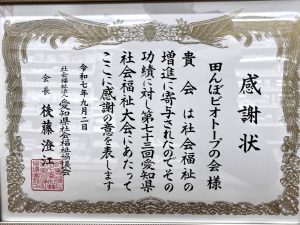 感謝状
田んぼビオトープの会 様
貴会は社会福祉の
増進に寄与されたのでその
功績に対し第七十三回愛知県
社会福祉大会にあたって
ここに感謝の意を表します
令和七年九月二日
社会福祉法人 愛知県社会福祉協議会
会長 後藤澄江